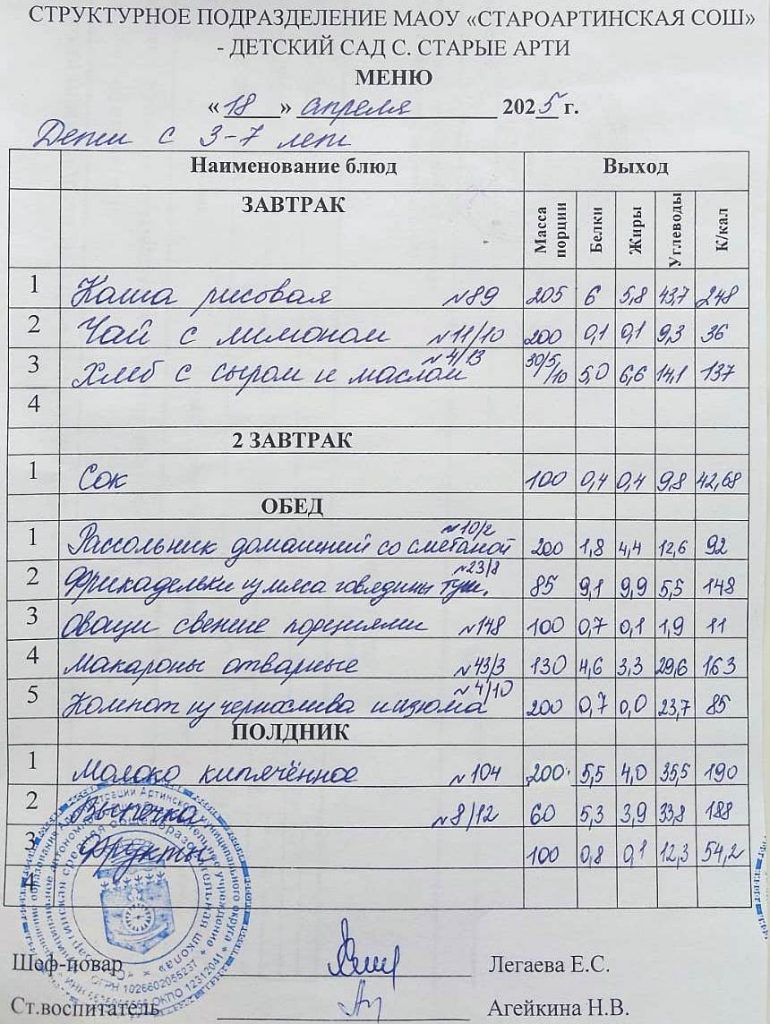 СТРУКТУРНОЕ ПОДРАЗДЕЛЕНИЕ МАОУ «СТАРОАРТИНСКАЯ СОШ»
- ДЕТСКИЙ САД С. СТАРЫЕ АРТИ
МЕНЮ
« 18 » апреля 2025 г.
Дети с 3-7 лет
Наименование блюд Выход
ЗАВТРАК Масса порции Белки Жиры Углеводы К/кал
1 Каша рисовая №89 205 6 5,8 43,7 248
2 Чай с лимоном №11/10 200 0,1 0,1 9,3 36
3 Хлеб с сыром и маслом №4/13 30/5/10 5,0 6,6 14,1 137
4
2 ЗАВТРАК
1 Сок 100 0,4 0,4 9,8 42,68
ОБЕД
1 Рассольник домашний со сметаной №10/2 200 1,8 4,4 12,6 92
2 Фрикадельки из мяса говядины туш. №23/8 85 9,1 9,9 5,5 148
3 Овощи свежие порциями №148 100 0,7 0,1 1,9 11
4 Макароны отварные №43/3 130 4,6 3,3 29,6 163
5 Компот из чернослива и изюма №4/10 200 0,7 0,0 23,7 85
ПОЛДНИК
1 Молоко кипячённое №104 200 5,5 4,0 35,5 190
2 Выпечка №8/12 60 5,3 3,9 33,8 188
3 Фрукты 100 0,8 0,1 12,3 54,2
4
Шеф-повар Легаева Е.С.
Ст.воспитатель Агейкина Н.В.
ОГРН 1026602055237
ОКПО 12312041